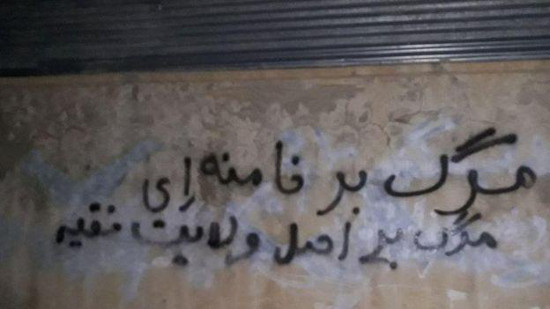 مرگ بر خامنه‌ای
مرگ بر اصل ولایت فقیه